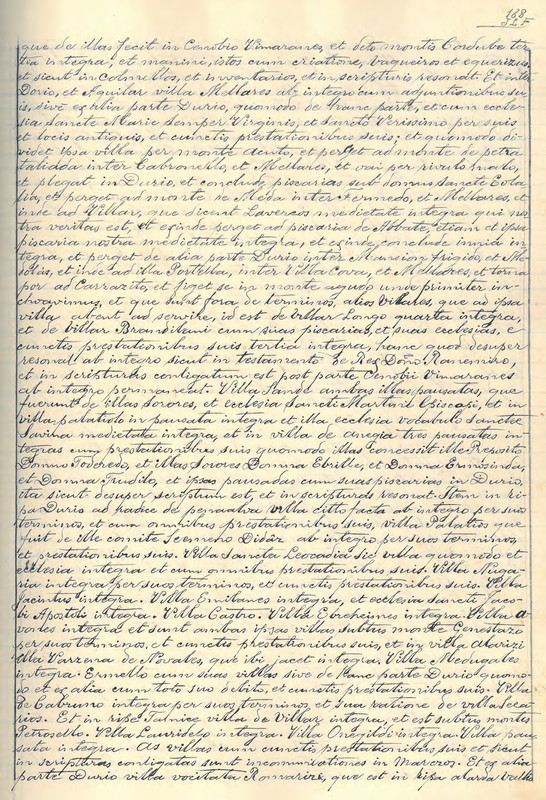 188
que de illas fecit in Cenobio Vimaranes, et de to montis Cordube ter
tia integra, et manini, istos cum criatione, vaqueiros et equerizus,
et sicut in colmellos, et inventarios, et in scripturis resonat. Et inter
Dorio, et Aquilar villa Mellares ab integro cum adjuntionibus su
is, sive ex alia parte Durio, quomodo de hanc parte, et cum eccle
sia Sancte Marie semper Virginis, et Sancto Verissimo per suis
et locis antiquis, et cunctis prestationibus suis; et quomodo di
videt ipsa villa per monte acuto, et perget ad monte de petra
taliada inter Cabronello, et Mellares, et vai per rivulo
et plegat in Durio, et conclude piscarias sub domus Sancte Eola
lia, et perget ad monte de Meda inter Fermedo, et Mellares, et
inde ad Villar, que dicent Lavercos medietate integra qui nos
tra veritas est, et exinde perget ad piscaria de Abbate, etiam et ipsa
piscaria nostra medietate integra, et exinde conclude in
tegra, et perget de alia parte Durio inter Mancion frigido, et Me
et inde ad illa Portella, inter Villa Cova, et Mellares, et torna
por ad Carrazeto, et figet se in monte agudo unde primiter in
choavimus, et que sunt foras de terminos, alios Villares, que ad ipsa
villa abent ad servire, id est de villar Longo quarta integra,
et de Villar Brandilani cum suas piscarias, et suas ecclesias, e
cunctis prestationibus suis tertia integra, hanc quod desuper
resonat ab integro sicut in testamento de Rex Dono Ranemiro,
et in scripturas conligatum est post parte Cenobii Vimaranes
ab integro permaneat. Villa Sande ambas illas pausatas, que
fuerunt de illas Sorores, et ecclesia Sancti Martini Episcopi, et in
villa palatiolo in pausata integra et illa ecclesia vocabulo Sancte
Savina medietate integra, et in villa de anegia tres pausatas in
tegras cum prestationibus suis quomodo illas concessit ille Presvito
Domno Toderedo, et illas Sorores Domna Ebrilli, et Domna Ermosinda,
et Domna Trudilo, et ipsas pausadas cum suas piscarias in Durio,
ita sicut desuper scriptum est, et in scripturas resonat. Item in ri
pa Durio ad radice de pennaalva villa citto facta ab integro per suos
terminos, et cum omnibus prestationibus suis, villa Palatios que
fuit de ille comite Scemeno Didaz ab integro per suos terminos,
et prestationibus suis. Villa Sancta Leocadia sic villa quomodo et
ecclesia integra et cum omnibus prestationibus suis. Villa Noga
ria integra per suos terminos, et cunctis prestationibus suis. Villa
Jacintus integra. Villa Emilanes integra, et ecclesia Sancti Jaco
bi Apostoli integra. Villa Castro. Villa Ebreheimes integra. Villa A
vones integra et sunt ambas ipsas villas subtus monte Genestazo
per suos terminos, et cunctis prestationibus suis, et in villa Alarizi
illa Varzena de Novales, que ibi jacet integra, Villa Meougales
integra. Ermello cum suas villas sive de hanc parte Durio quomo
do et de alia cum toto suo debito, et cunctis prestationibus suis. Villa
de Cabruno integra per suos terminos, et sua ratione de villa
rios. Et in ripe Talnice villa de Villar integra, et est subtus montes
Petrosello. Villa Lauridelo integra. Villa Onegildi integra. Villa pau
sata integra. As villas cum cunctis prestationibus suis et sicut
in scripturas conligatas sunt incommuniationes in Marcos. Et ex alia
parte Durio villa vocitata Romarizi, que est in ripa alarda villa